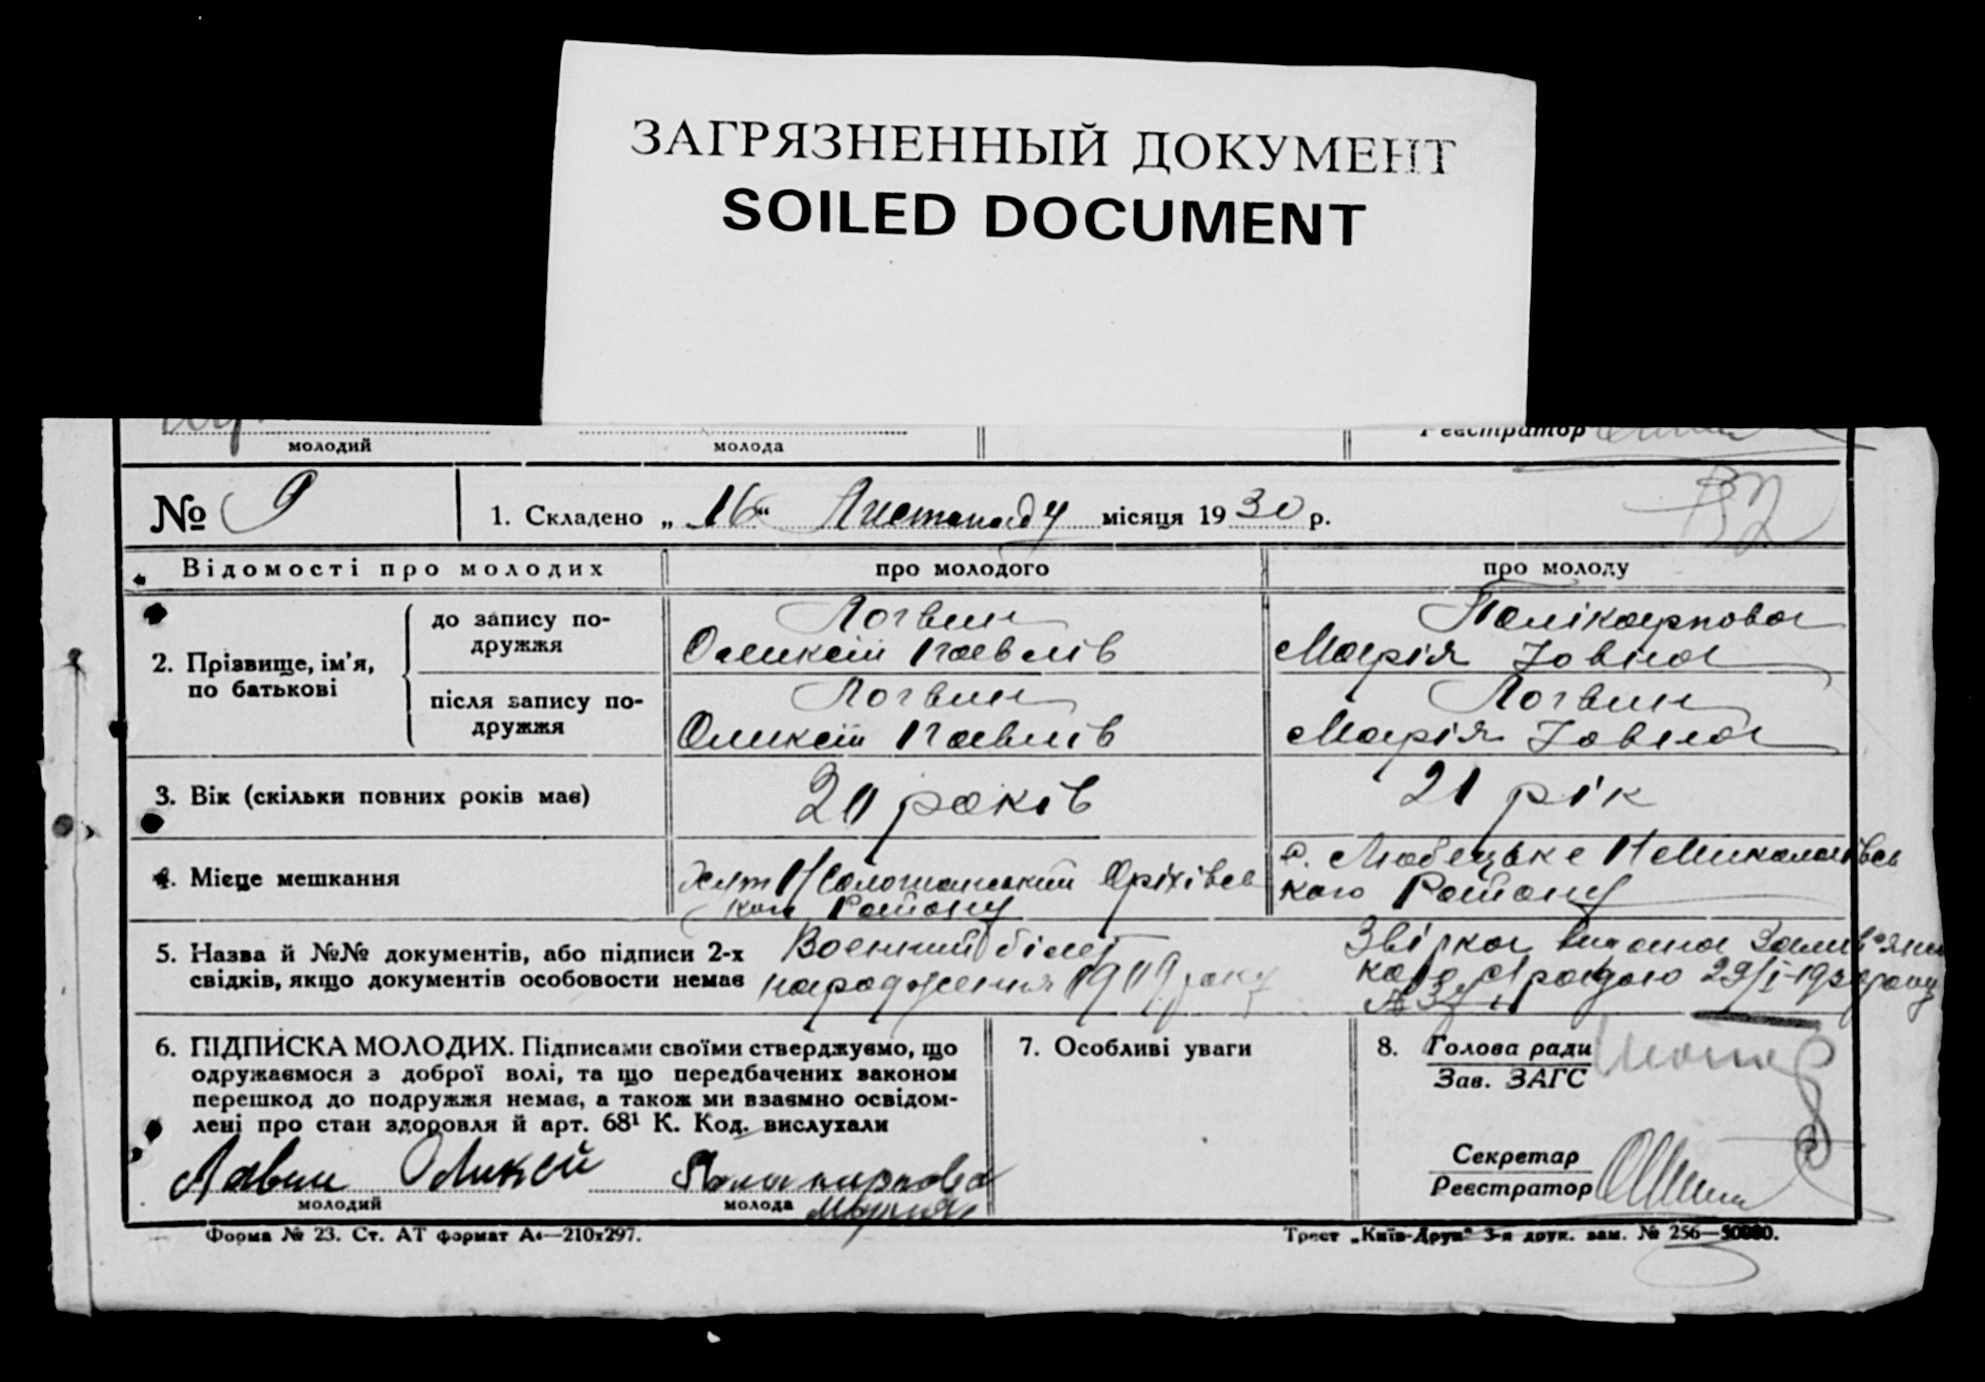 ЗАГРЯЗНЕННЫЙ ДОКУМЕНТ
SOILED DOCUMENT
молодий молода Реєстратор
№ 9 1. Складено „16“ Листопаду місяця 1930 р.
Відомості про молодих про молодого про молоду
2. Прізвище, ім'я, по батькові
до запису по-
дружжя
Логвин
Олексій Павлів
Полікарпова
Марія Іовна
після запису по-
дружжя
Логвин
Олексій Павлів
Логвин
Марія Іовна
3. Вік (скільки повних років має) 20 років 21 рік
4. Місце мешкання
Оріхівсь
кого Району
с. Любецьке
кого Району
5. Назва й №№ документів, або підписи 2-х
свідків, якщо документів особовости немає
Военний білет
народження 1909 року
6. ПІДПИСКА МОЛОДИХ. Підписами своїми стверджуємо, що
одружаємося з доброї волі, та що передбачених законом
перешкод до подружжя немає, а також ми взаємно освідом-
лені про стан здоровля й арт. 68¹ К. Код. вислухали
молодий молода
7. Особливі уваги
8. Голова ради
Зав. ЗАГС
Секретар
Реєстратор
Форма № 23. Ст. АТ формат А4—210х297.
Трест „Київ-Друк“ 3-я друк. зам. № 256—50000.